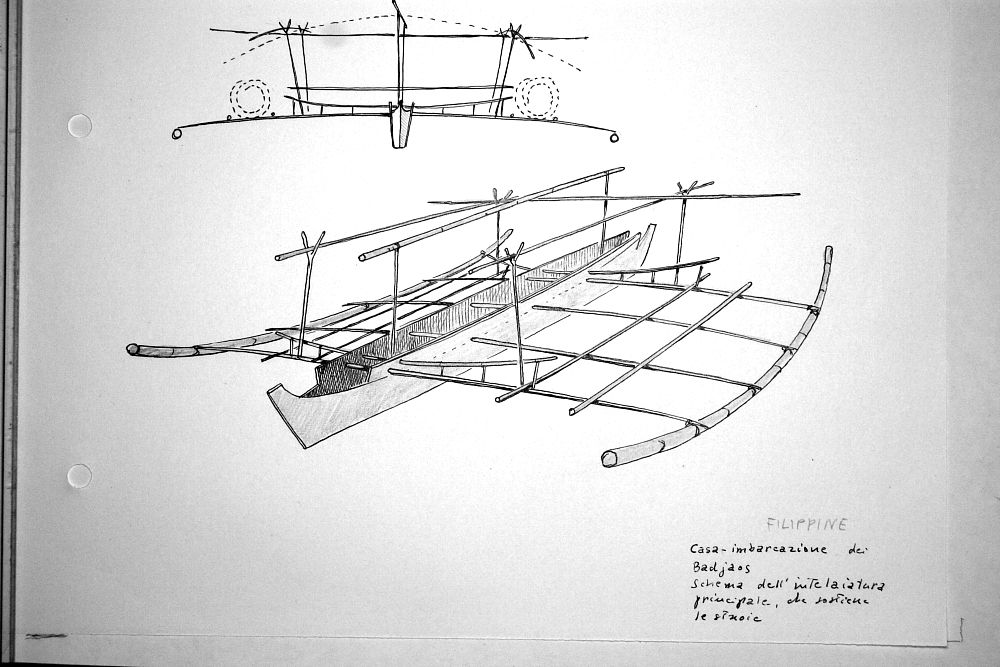 FILIPPINE
Casa-imbarcazione dei
Badjaos
Schema dell'intelaiatura
principale, che sostiene
le stuoie